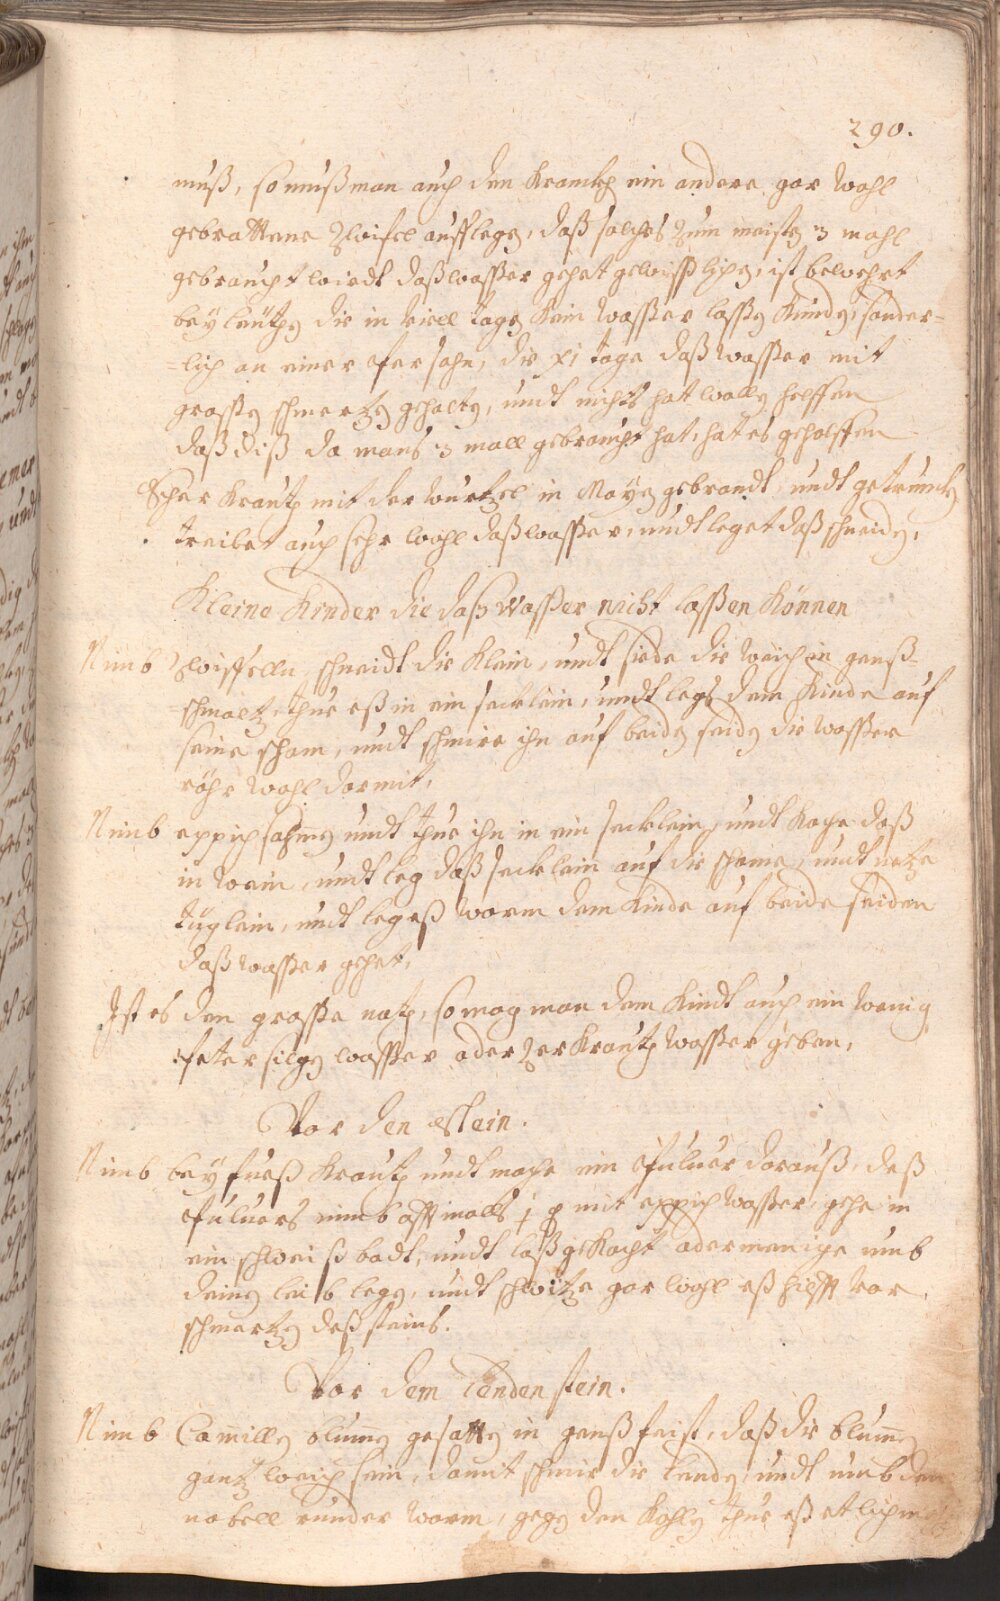 290.
muß, so muß man auch den Krancken ein andere gar wohl
gebrattene Zwifel aufflegen, daß solches zum meisten 3 mahl
gebraucht wirdt daß wasser gehet gewißlichen, ist bewehret
bey leüthen die in viell tagen kein Wasser lassen künden, sonder=
=lich an einer Persohn, die xi tage daß Wasser mit
grossen schmertzen gehalten, undt nichts hat wollen helffen
daß diß da mans 3 mall gebraucht hat, hat es geholffen
Scher Kraut mit der wurtzel in Mayen gebrandt undt getruncken
treibet auch sehr wohl daß wasser, undt leget daß schneiden,
Kleine Kinder die daß Wasser nicht lassen Können
Nimb Zwiffelln, schneidt die klein, undt siede die weich in genß=
schmaltz thue eß in ein secklein, undt legs dem Kinde auf
seine scham, undt schmire ihn auf beiden seiden die wasser
röhr wohl darmit,
Nimb eppich sahmen undt thue ihn in ein secklein, undt koche daß
in wein, undt leg daß secklein auf die schame, undt netze
tüglein, undt leg eß warm dem Kinde auf beide seiden
daß wasser gehet,
Ist es den grosse noth, so mag man dem Kindt auch ein wenig
Petersilgen wasser oder Kraut Wasser geben,
Vor den Stein.
Nimb beyfueß Kraut undt mache ein Puluer darauß, deß
Puluers nimb offtmalls j mit eppich wasser, gehe in
ein schweiß badt, undt laß gekocht umb
deinen leib legen, undt schwitze gar wohl eß hilfft vor
schmertzen deß steins.
Vor dem lenden stein.
Nimb Camillen blumen gesotten in genß feist, daß die blumen
gantz weich sein, damit schmir die lenden, undt umb den
nabell runder warm, gegen den Kohlen thue eß etlich